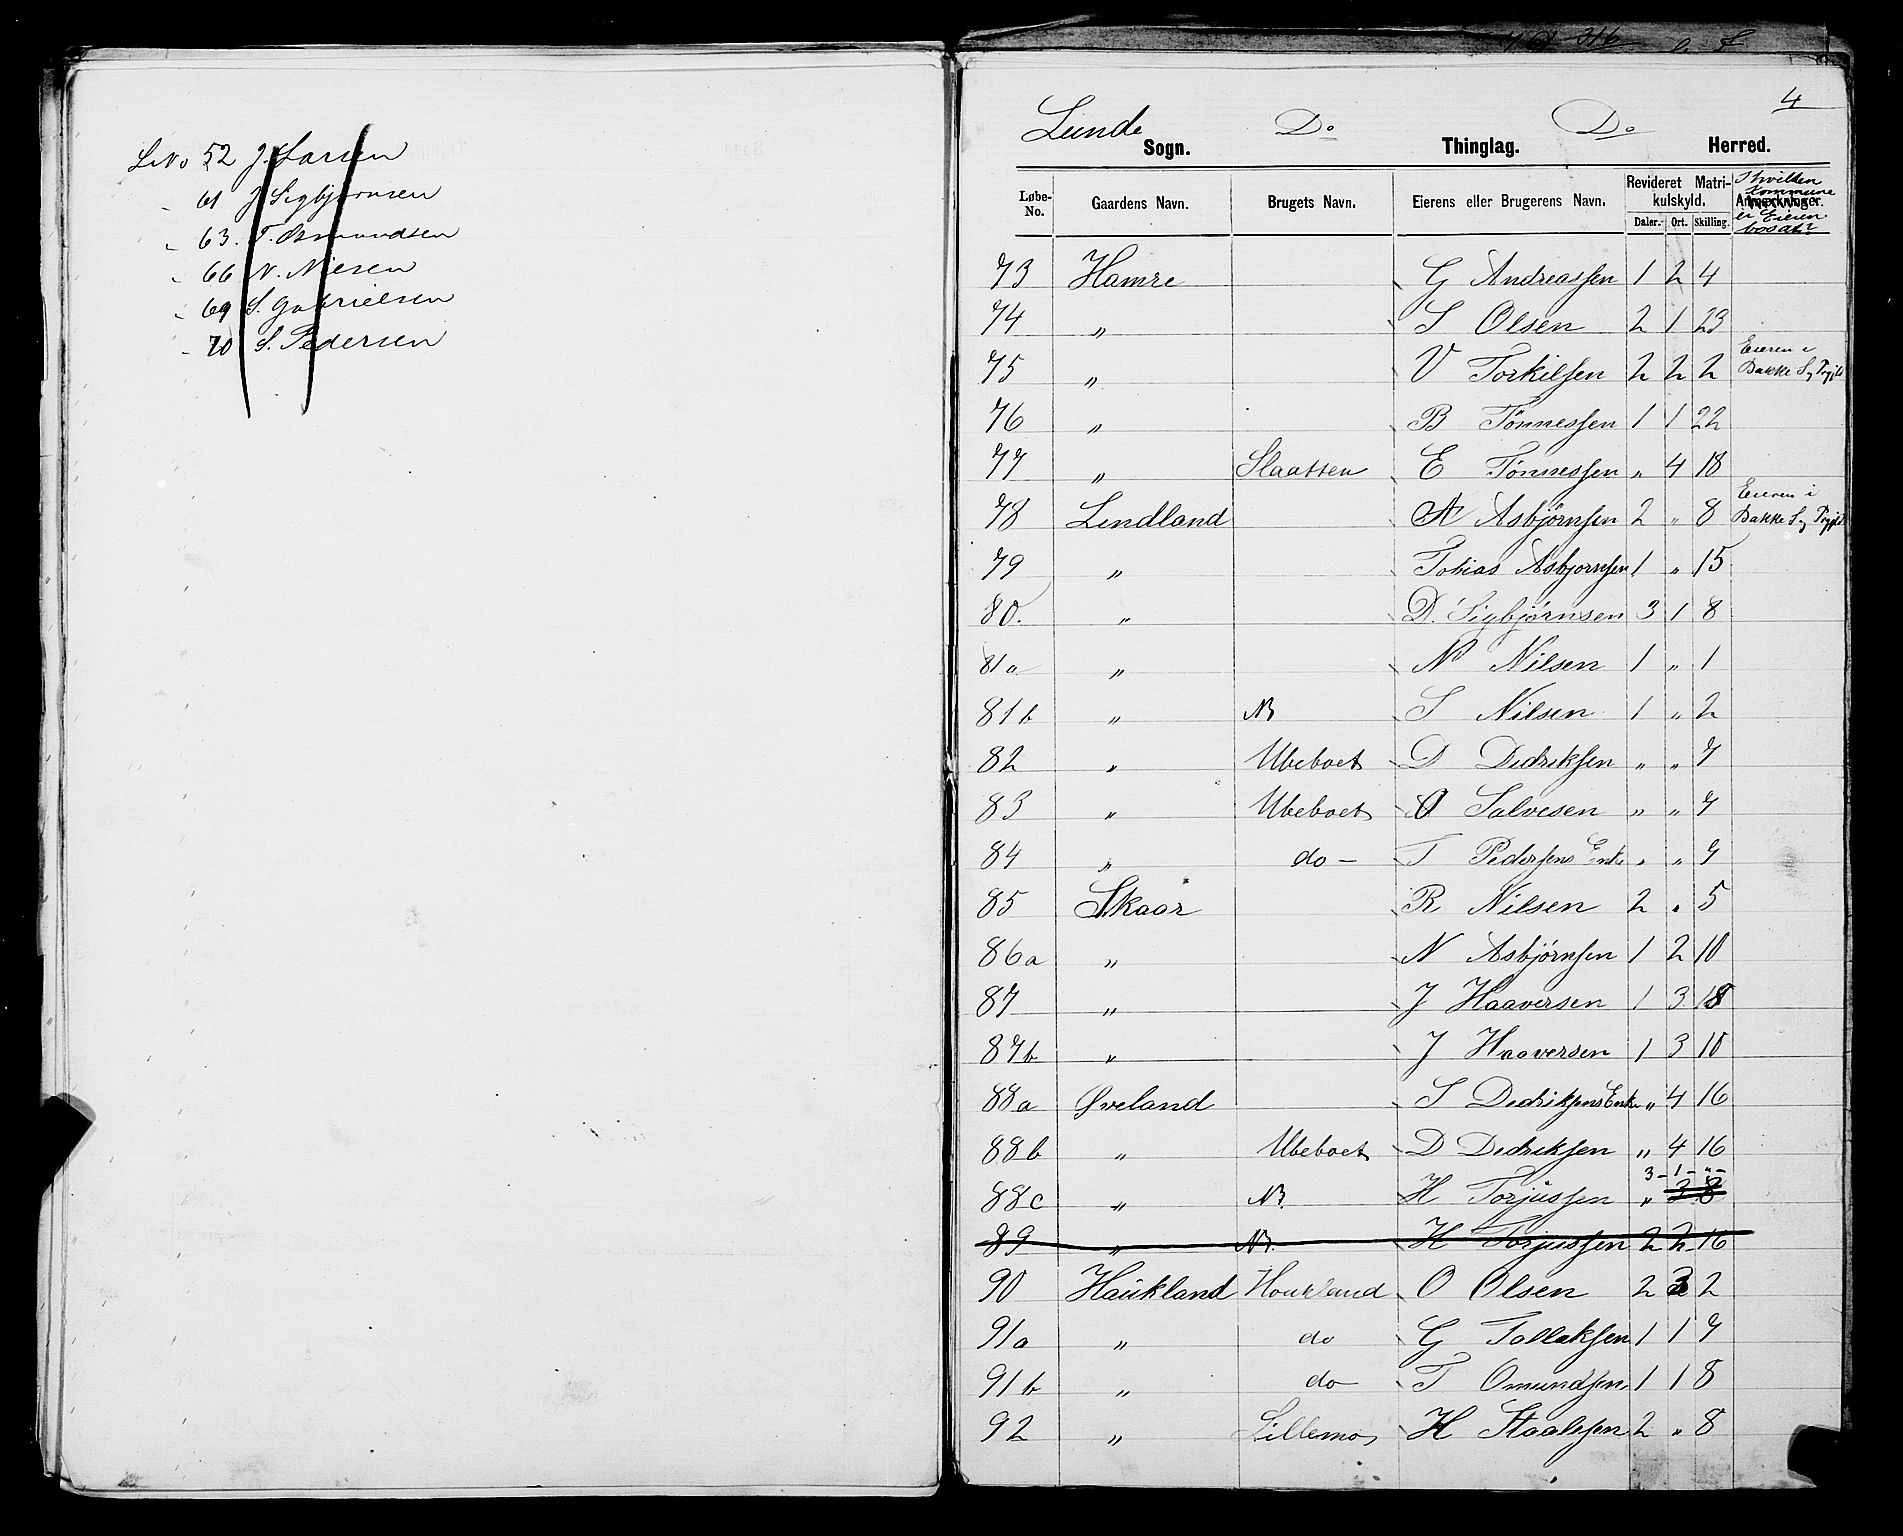 LNo 52 J. Larsen
" 61 J Sigbjørnsen
" 63. T. Osmundsen
" 66 N. Nilsen
" 69 S. Gabrielsen
" 70 S. Pedersen
4
Lunde Sogn. Do Thinglag. Do Herred.
Løbe-No. Gaardens Navn. Brugets Navn. Eierens eller Brugerens Navn. Revideret Matrikulskyld. Daler. Ort. Skilling. Anmærkninger. I hvilken Kommune er Eieren bosat?
73 Hamre G Andreassen 1 2 4
74 " S Olsen 2 1 23
75 " V Torkilsen 2 2 2 Eieren i Bakke Sg
76 " B Tönnessen 1 1 22
77 " Slaatten E Tönnessen " 4 18
78 Lindland A Asbjørnsen 2 " 8 Eieren i Bakke Sg
79 " Tobias Asbjornsen 1 " 15
80. " D. Sigbjørnsen 3 1 8
81a " N Nilsen 1 " 1
81b " NB S Nilsen 1 " 2
82 " Ubeboet D Dedriksen " " 7
83 " Ubeboet O Salvesen " " 7
84 " do – T Pedersens Enke " " 7
85 Skaar R Nilsen 2 " 5
86a " N Asbjørnsen 1 2 10
87 " J Haaversen 1 3 18
87b " J Haaversen 1 3 10
88a Øveland S Dedriksens Enke " 4 16
88b " Ubeboet D Dedriksen " 4 16
3 – 1 – " –
88c " NB. H Torjussen " 3 8
89 " NB. H Torjussen 2 2 16
90 Haukland Haukland O Olsen 2 3 2
91a " do G Tollaksen 1 1 7
91b " do T Omundsen 1 1 8
92 " Lillemo H Staalesen 2 " 8